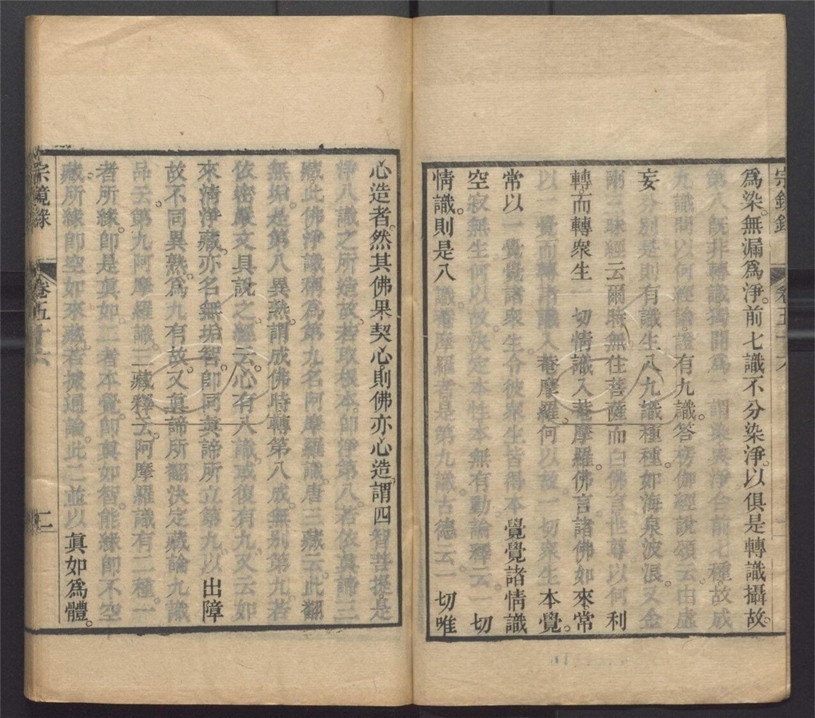 宗鏡錄 卷五十六
爲染。無漏爲淨。前七識不分染淨。以俱是轉識攝故。
第八既非轉識獨開爲二謂染與淨合前七種故成
九識問以何經論證有九識。答楞伽經說頌云由虛
妄分別是則有識生八九識種種如海泉波浪。又金
剛三昧經云爾時無住菩薩而白佛言世尊以何利
轉而轉衆生一切情識入菴摩羅。佛言諸佛如來常
以一覺而轉諸識入菴摩羅。何以故。一切衆生本覺。
常以一覺覺諸衆生令彼衆生皆得本覺覺諸情識
空寂無生何以故決定本性本無有動論釋云一切
情識則是八識菴摩羅者是第九識古德云一切唯
心造者。然其佛果契心。則佛亦心造。謂四智菩提是
淨八識之所造故若取根本。即淨第八若依眞諦三
藏此佛淨識稱爲第九名阿摩羅識。唐三藏云。此翻
無垢。是第八異熟。謂成佛時轉第八成無別第九。若
依密嚴文具說之。經云。心有八識或復有九又云如
來清淨藏。亦名無垢智。即同眞諦所立第九以出障
故不同異熟。爲九有故。又眞諦所翻決定藏論九識
品云。第九阿摩羅識。三藏釋云。阿摩羅識有二種。一
者所緣。即是眞如。二者本覺。即眞如智。能緣即不空
藏所緣即空如來藏。若據通論。此二並以眞如爲體。
宗鏡錄 卷五十六 二